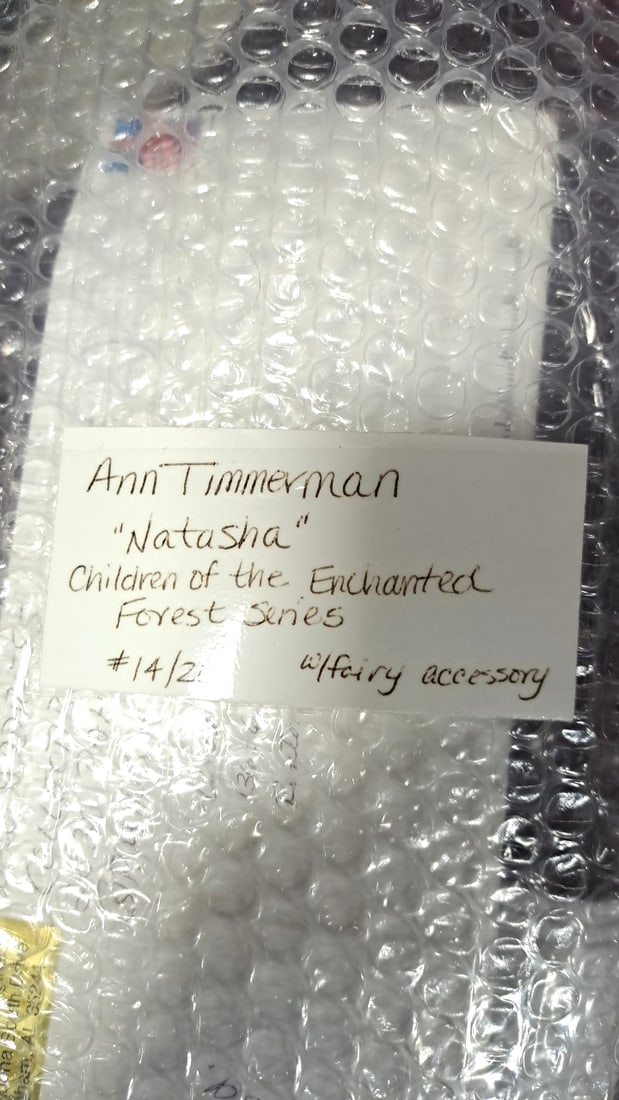 Ann Timmerman
"Natasha"
Children of the Enchanted
Forest Series
#14/2 w/fairy accessory